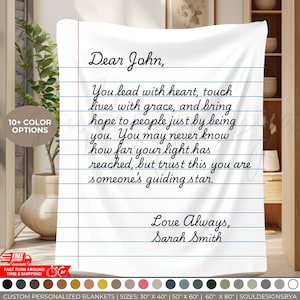 Dear John,
You lead with heart, touch
lives with grace, and bring
hope to people just by being
you. You may never know
how far your light has
reached, but trust this you are
someone's guiding star.
Love Always,
Sarah Smith
10+ COLOR
OPTIONS
FREE
FAST TURN AROUND
TIME & SHIPPING!
CUSTOM PERSONALIZED BLANKETS | SIZES: 30" X 40" | 50" X 60" | 60" X 80" | SOULEDESIGNS